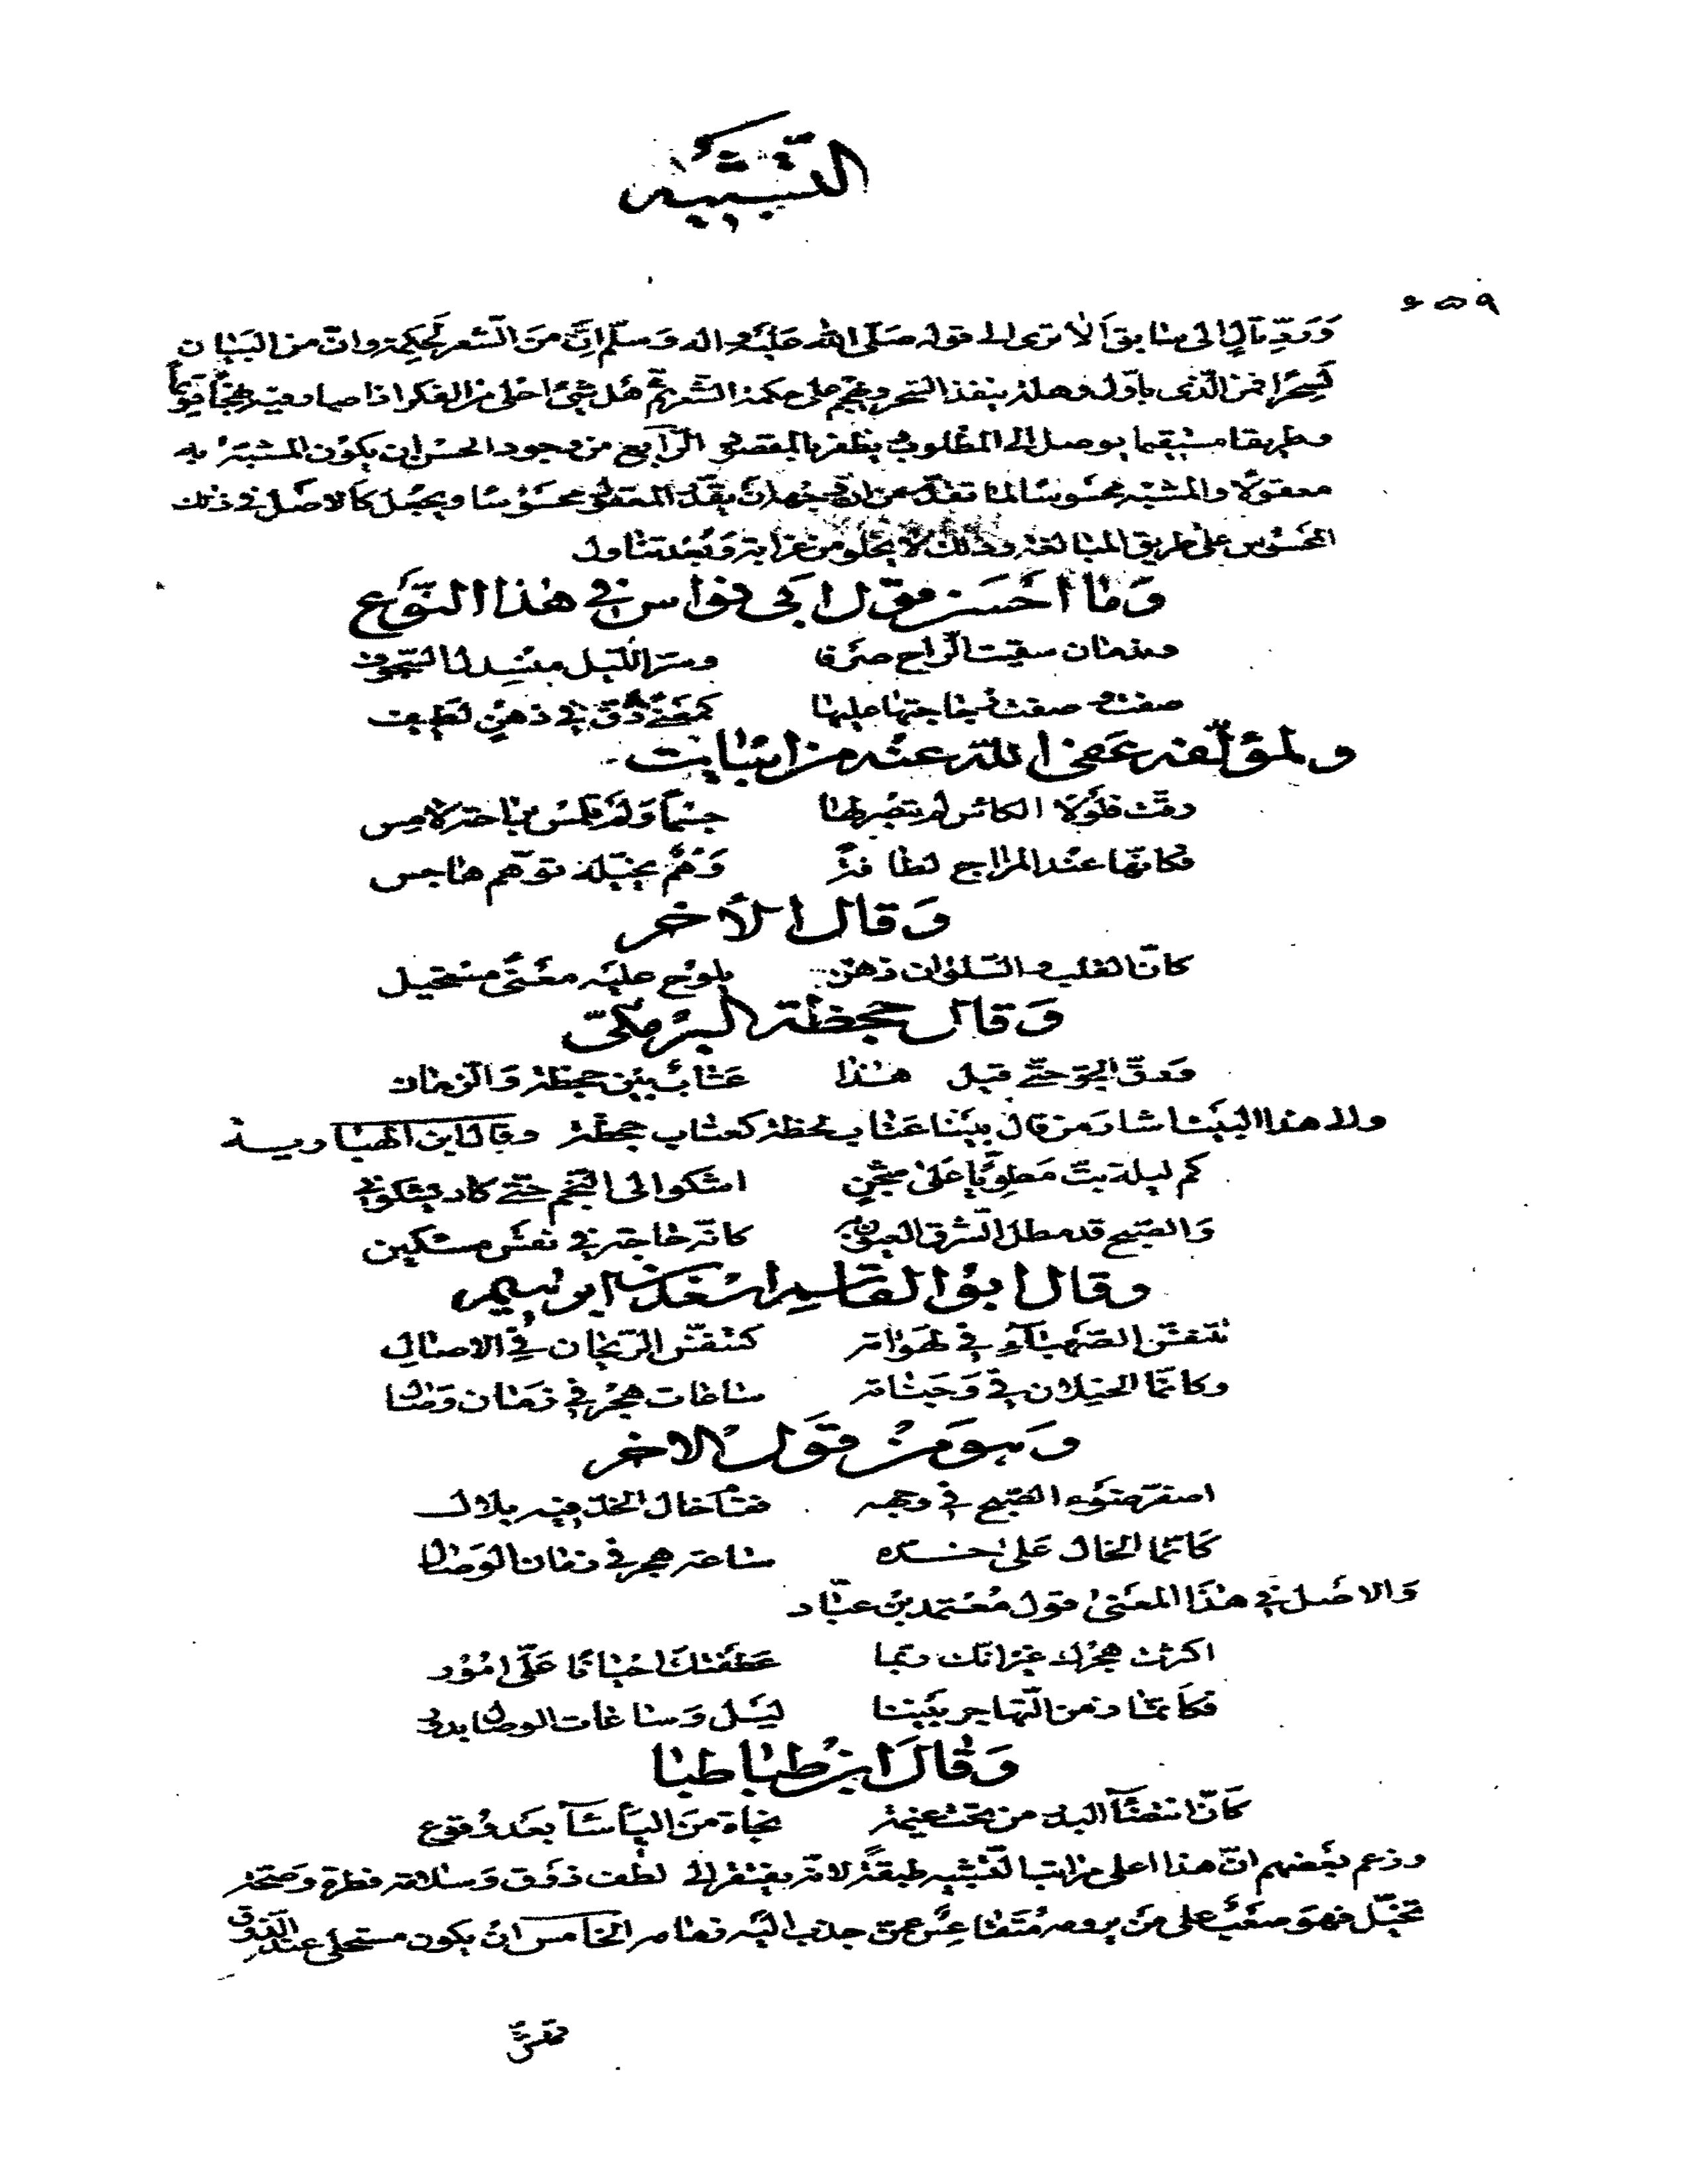 التشبيه
٥٥٩
وَرَدِّ تالٍ الى سابق ألا ترى الى قوله صَلّى الله عَلَيْه واله وَسلّم انّ منَ الشعر لحكمة وانّ من البَيان
لسِحْرًا فمن الذى ياول وهلة ينفذ السّحر ويهجم على حكمة الشّعر ثم هَل شئ احلى من الفكر اذا صادف نهجًا قويمًا
وطريقا مستقيما يوصل الى المطلوب ويظفر بالمقصود الرّابع من وجوه الحسن ان يكون المشبّه به
معقولًا والمشبّه محسوسًا لما تقدّم من انّ فيه يقدّر المعقول محسوسًا ويجعل كالاصل فى ذلك
المحسوس على طريق المبالغة وذلك لا يخلو من غرابة وَبُعْد تناول
وَما احْسَن قول ابى نواس فى هذا النّوع
وندمان سقيت الرّاح صرفا وستر اللّيل منسدل السّجوف
صفت وصفت زجاجتها عليها كمعنى دقّ فى ذهن لطيف
ولمؤلّفه عَفى الله عنه من ابيات
رقّت فلولا الكاس لم تبصر لها جسْمًا وَلم تلمس براحة لامس
فكانّها عند المزاج لطافة وَهْم يخيّله توهّم هاجس
وَقال الأخر
كانّ القلب والسّلوان ذهن يلوح عليه معْنى مستحيل
وَقال جحظة البرمكىّ
وَرقّ الجوّ حتّى قيل هذا عتاب بين جحظة وَالزمان
والى هذا البيت اشار من قال بيننا عتاب لحظة كعتاب جحظة وقال ابن الهبارية
كم ليلة بتّ مطويًّا على شجن اشكو الى النّجم حتّى كاد يشكونى
وَالصّبح قد مطل الشرق العيون به كانّه حاجة فى نفس مسكين
وقال ابو القاسم اسعد بن ابراهيم
تتنفّس الصّهباء فى لهواته كتنفّس الرّيحان فى الاصال
وكانّما الخيلان فى وَجناته ساعات هجر فى زمان وصال
وَهو من قول الاخر
اسفر ضوء الصّبح فى وجهه فقام خال الخدّ فيه بلال
كانّما الخال على خدّه ساعة هجر فى زمان الوصال
وَالاصل فى هذا المعنى قول معتمد بن عبّاد
اكثرت هجرك غير انّك ربّما عَطفتك احيانا علىّ امُور
فكانّما زمن التّهاجر بيننا ليل وَساعات الوصال بدور
وَقال ابن طباطبا
كانّ انتضاء البدر من تحت غيمة نجاة من البأساء بعد وقوع
وزعم بعضهم انّ هذا اعلى مراتب التّشبيه طبقة لانّه يفتقر الى لطف ذوق وَسلامة فطرة وَصحّة
تخيّل فهو صعب على من يرومه متقاعس عمّن جذب اليه زمامه الخامس ان يكون مستحلى عند الذّوق